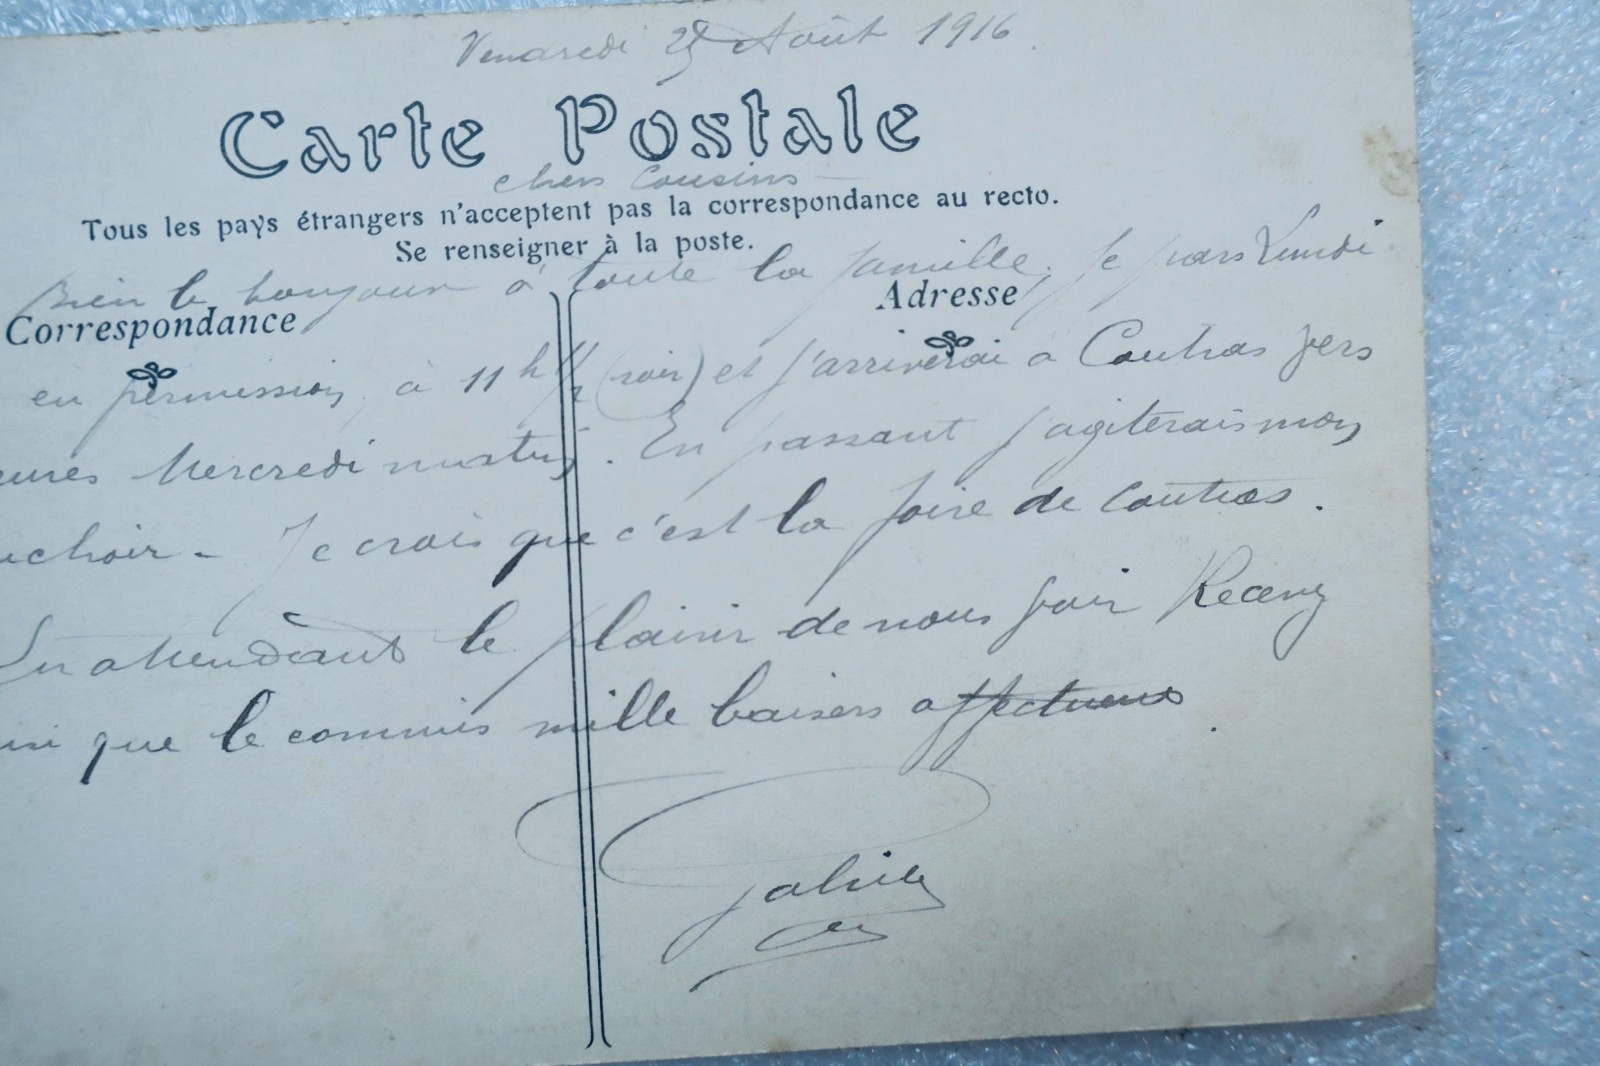 Vendredi 25 Août 1916
Carte Postale
chers Cousins
Tous les pays étrangers n'acceptent pas la correspondance au recto.
Se renseigner à la poste.
Bien le bonjour à toute la famille. Je pars Lundi
Correspondance
Adresse
en permission, à 11 h 1/2 (soir) et j'arriverai à Coutras vers
eures Mercredi matin. En passant j'agiterais mon
uchoir - Je crois que c'est la foire de Coutras.
En attendant le plaisir de vous voir Recevez
nsi que le commis mille baisers affectueux.